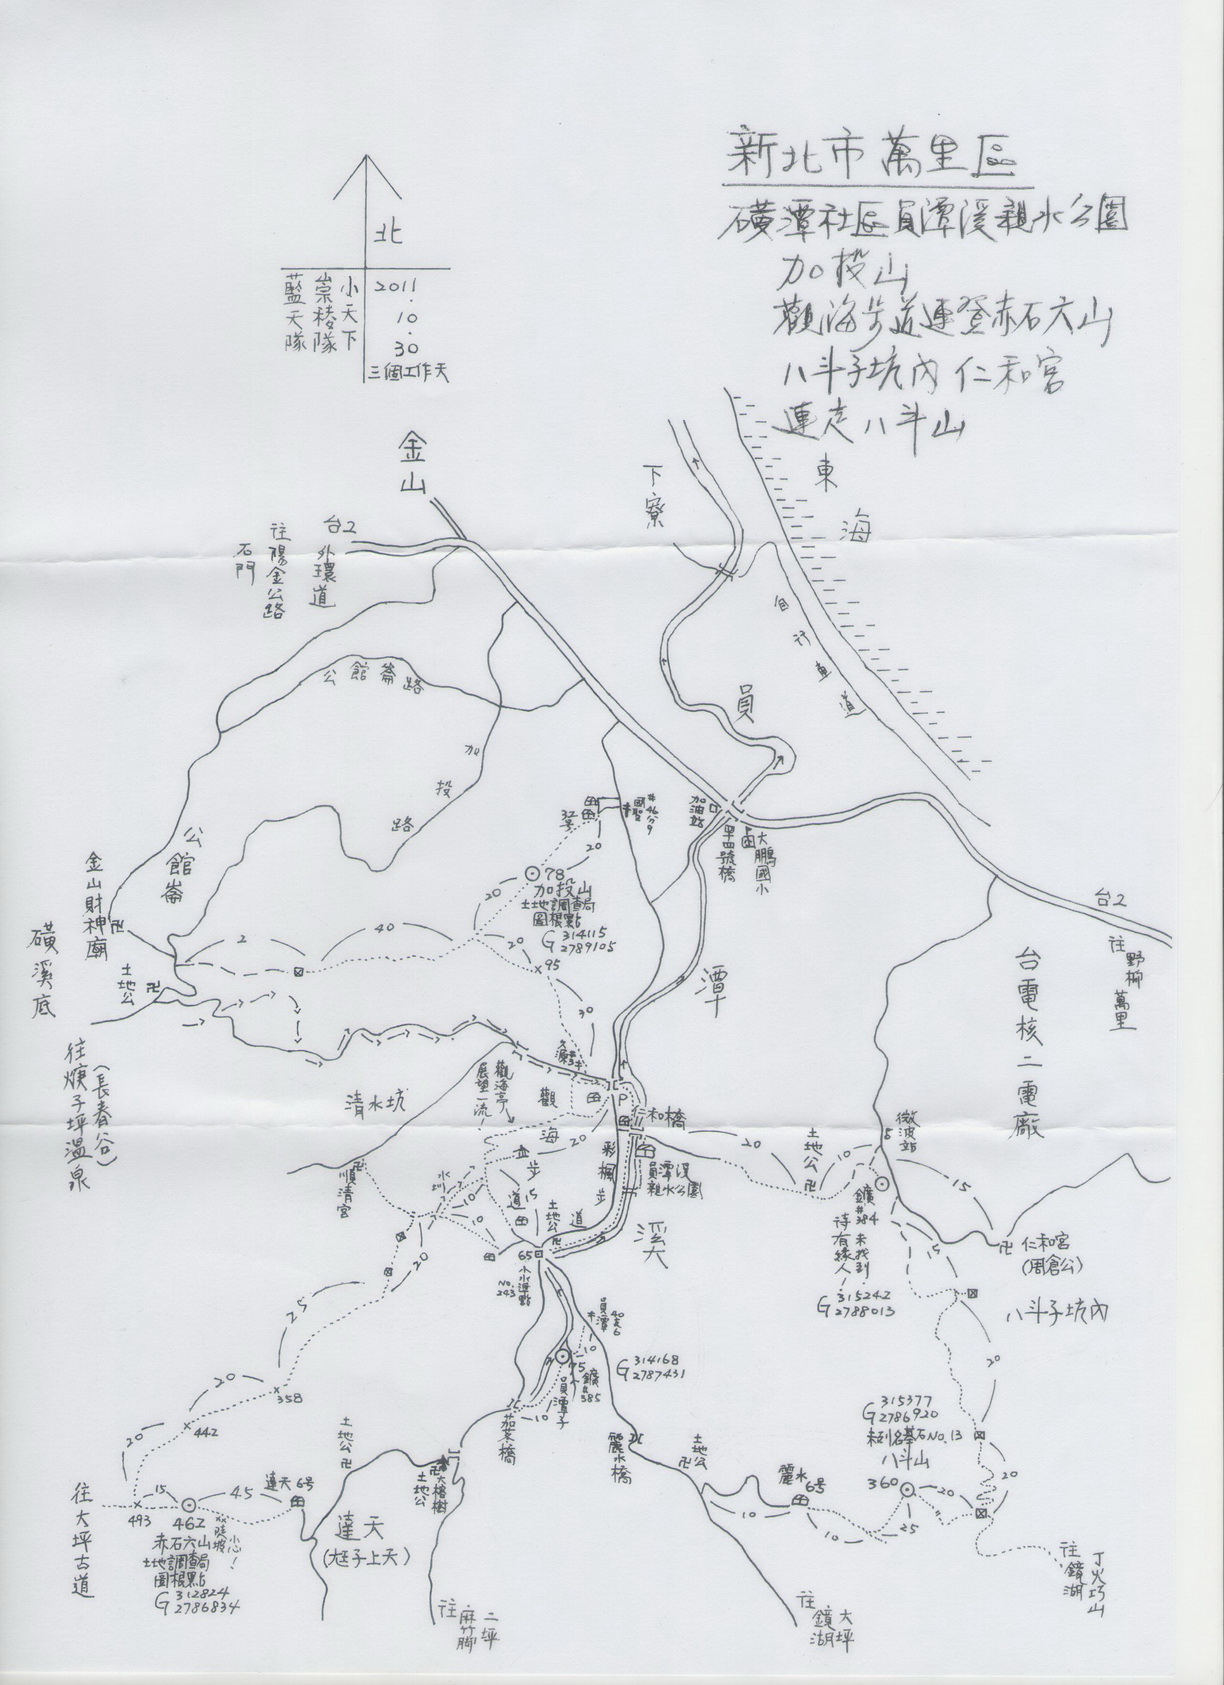 新北市萬里區
磺潭社區員潭溪親水公園
加投山
觀海步道連登赤石六山
八斗子坑內 仁和宮
連走八斗山
北
小天下
崇稜隊
藍天隊
2011.10.30
三個工作天
金山
台2
外環道
往陽金公路
石門
下寮
東海
自行車道
員潭溪
公館崙路
加投路
公館崙
金山財神廟
卍
磺溪底
土地公
卍
往焿子坪溫泉
(長春谷)
加油站
第四號橋
大鵬國小
台2
往野柳
萬里
台電核二電廠
32號
20
20
78
加投山
土地調查局
圖根點
G 314115
2789105
20
95
30
40
2
清水坑
觀海亭
展望一流!
觀海步道
20
15
P
和橋
彩楓步道
員潭溪
親水公園
20
土地公
卍
10
微波站
15
卍
仁和宮
(周創公)
八斗子坑內
鑛#384
未找到
待有緣人!
G 315242
2788013
15
20
G 315377
2786920
未列名基石No.13
八斗山
360
20
20
25
10
10
麗水6號
土地公
卍
麗水橋
往鏡湖
大坪
往鏡湖
丁火巧山
順清宮
卍
水圳
10
土地公
卍
65
水準點
No.243
10
75
鑛#385
員潭子
G 314168
2787431
10
茄苳橋
20
25
358
20
442
20
493
15
462
45
赤石六山
土地調查局
圖根點
G 312824
2786834
陡坡
小心!
達天6號
往大坪古道
土地公
卍
達天
(尪子上天)
大榕樹
土地公
卍
往麻竹腳
二坪